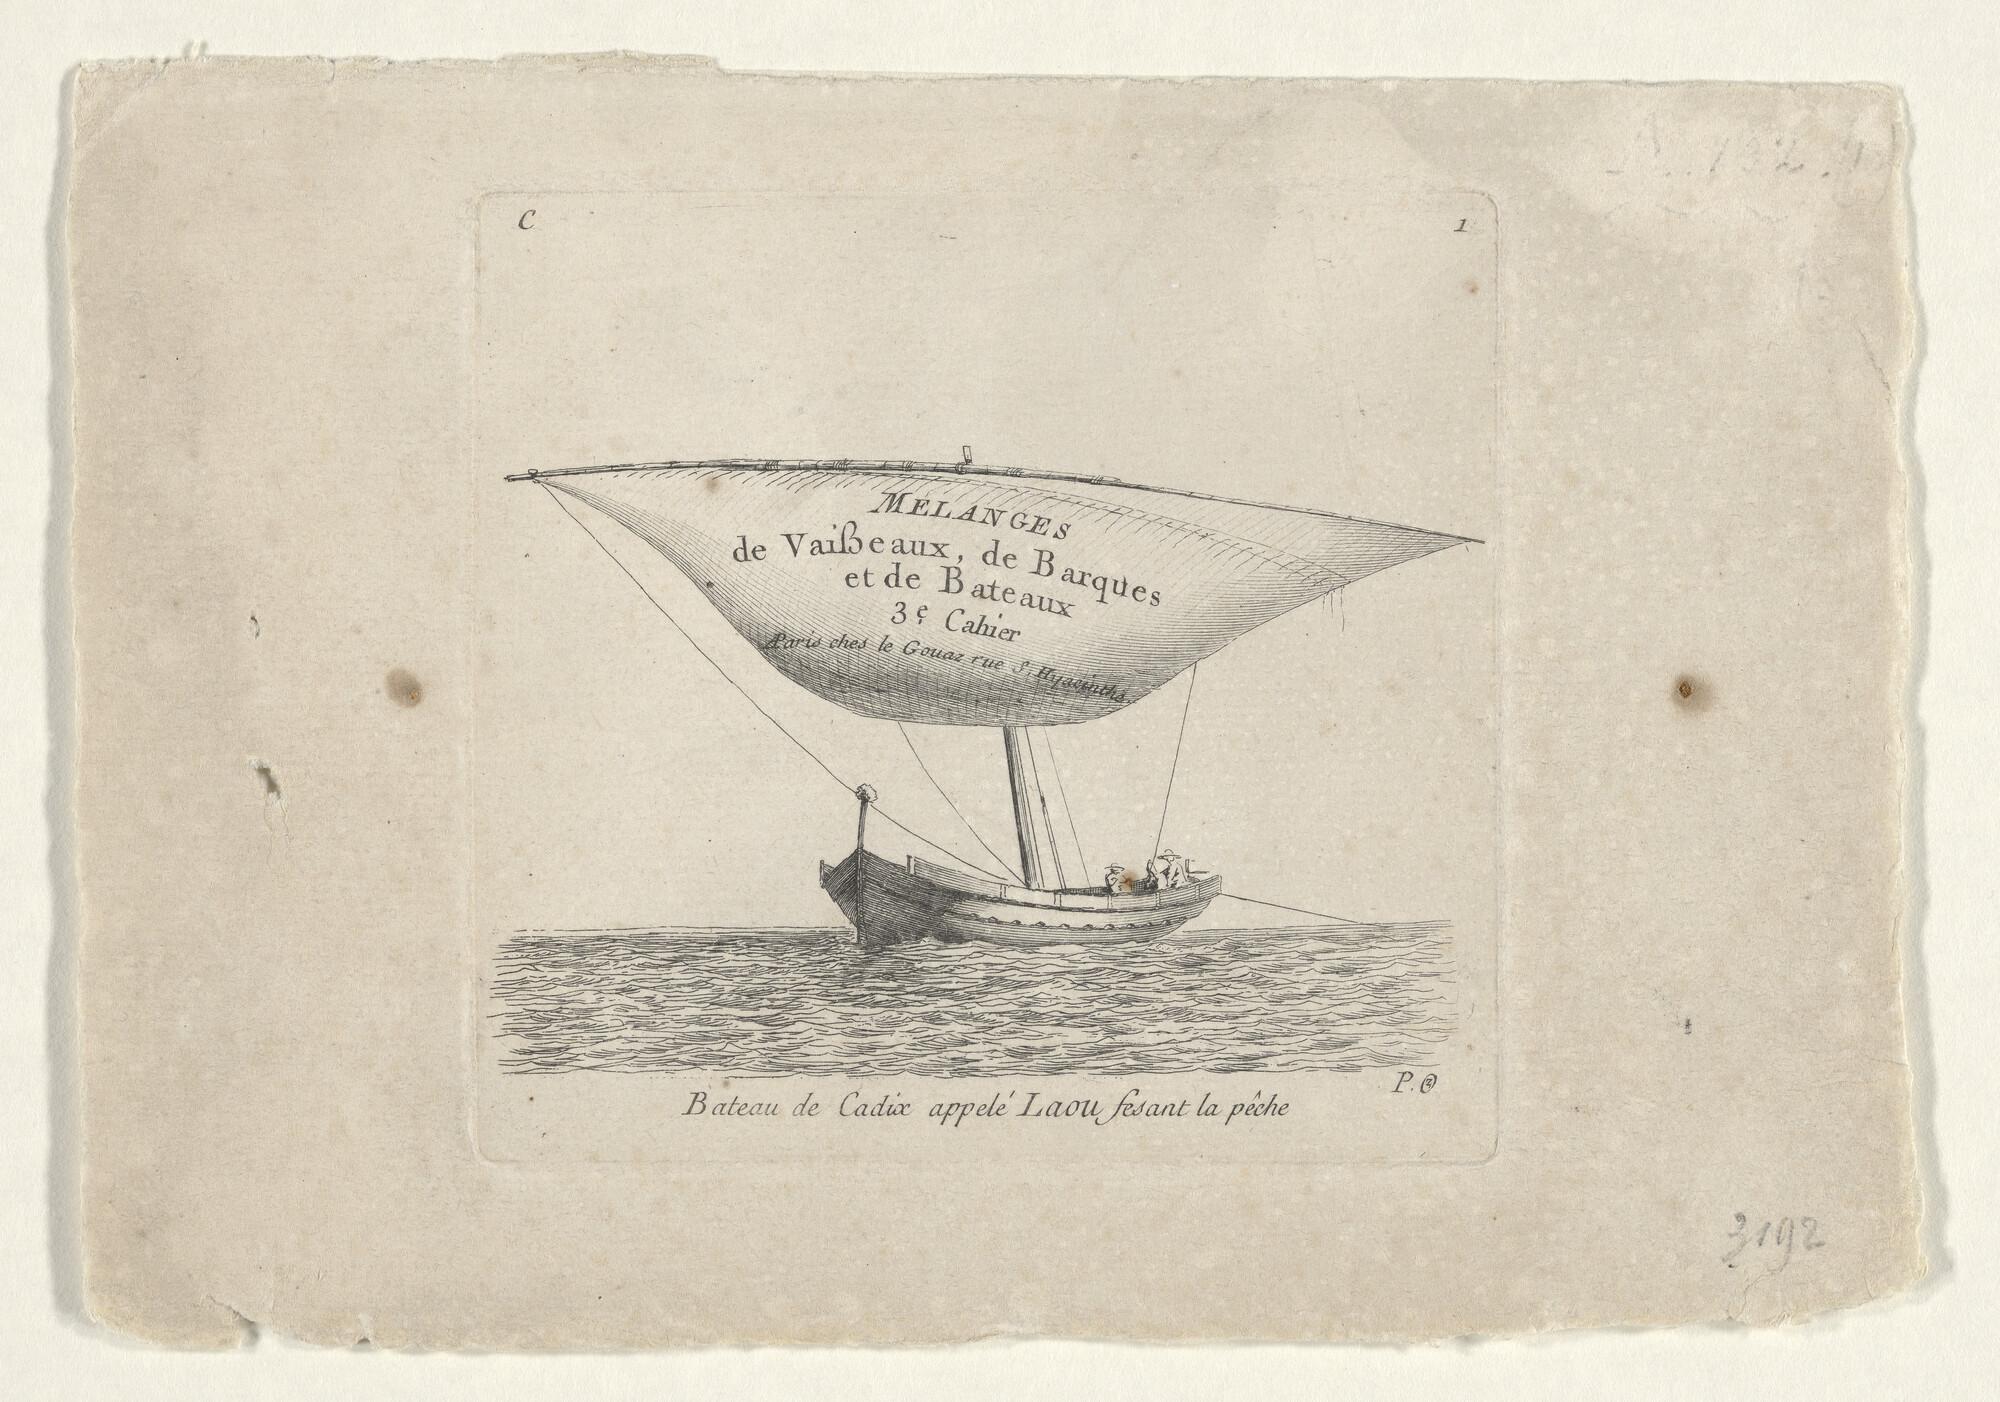 C
1
MELANGES
de Vaißeaux, de Barques
et de Bateaux
3.e Cahier
A Paris ches le Gouaz rue S. Hyacinthe
P. O
Bateau de Cadix appelé Laou fesant la pêche
3192